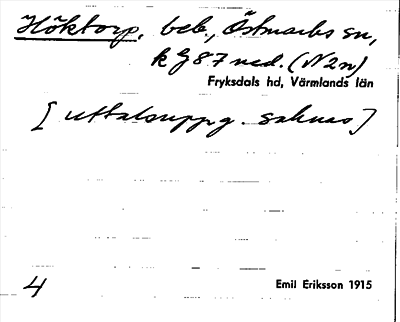 Höktorp, beb., Östmarks sn,
k G 87 ned. (N2n)
Fryksdals hd, Värmlands län
[uttalsuppg. saknas]
4
Emil Eriksson 1915